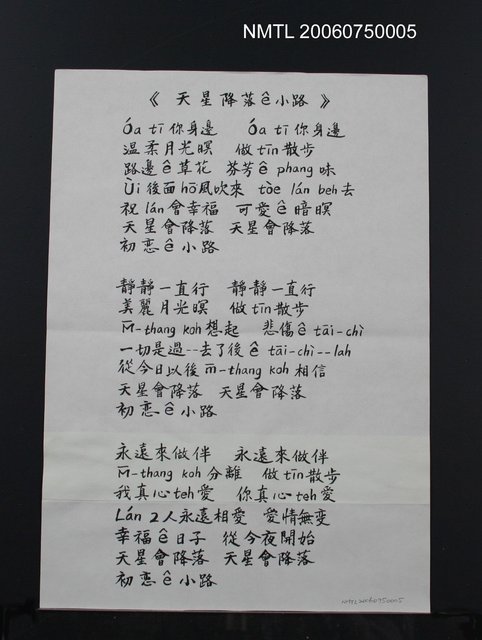 NMTL 20060750005
《天星降落ê小路》
Óa tī 你身邊 Óa tī 你身邊
溫柔月光暝 做tīn散步
路邊ê草花 芬芳ê phang味
Ùi後面hō͘風吹來 tòe lán beh去
祝lán會幸福 可愛ê暗暝
天星會降落 天星會降落
初恋ê小路
靜靜一直行 靜靜一直行
美麗月光暝 做tīn散步
M̄-thang koh想起 悲傷ê tāi-chì
一切是過--去了後ê tāi-chì--lah
從今日以後 m̄-thang koh相信
天星會降落 天星會降落
初恋ê小路
永遠來做伴 永遠來做伴
M̄-thang koh分離 做tīn散步
我真心teh愛 你真心teh愛
Lán 2人永遠相愛 愛情無変
幸福ê日子 從今夜開始
天星會降落 天星會降落
初恋ê小路
NMTL20060750005